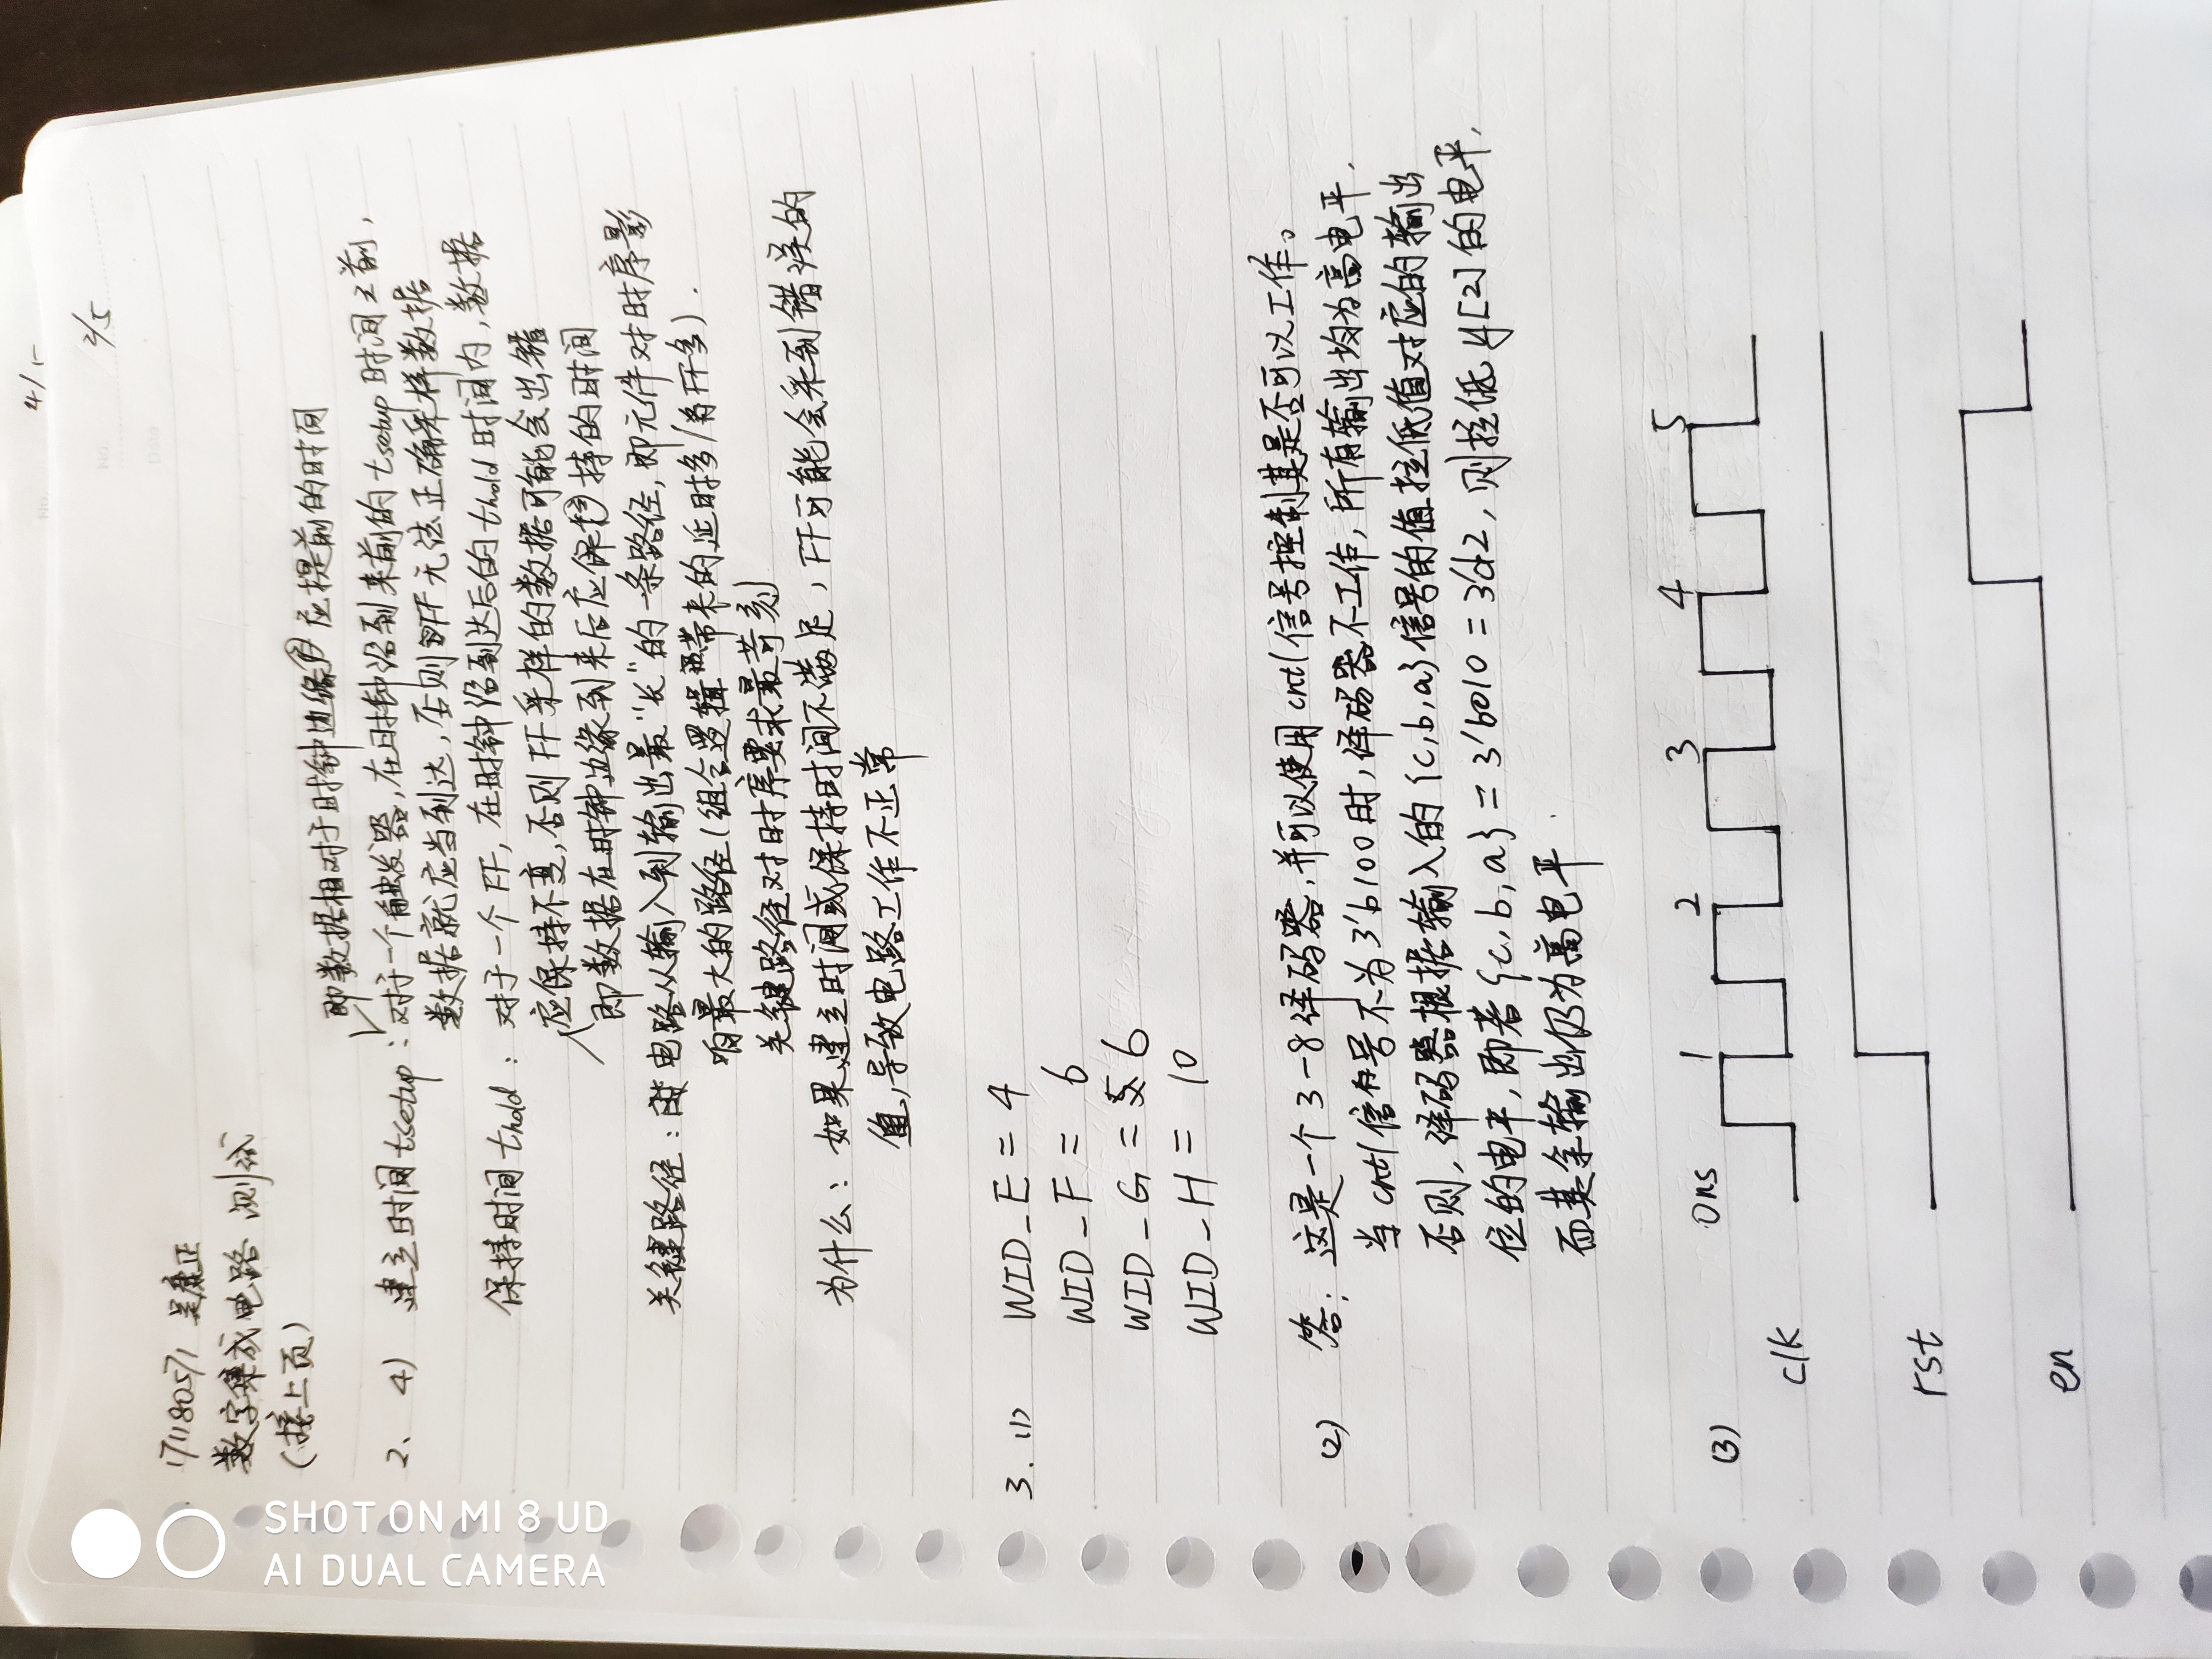 4/5
2/5
17118057 吴康正
数字集成电路 测试
(接上页)
即数据相对于时钟边缘应提前的时间
2、4) 建立时间 tsetup : 对于一个触发器,在时钟沿到来前的 tsetup 时间之前,
数据就应当到达,否则 FF 无法正确采样数据
保持时间 thold : 对于一个 FF, 在时钟沿到达后的 thold 时间内,数据
应保持不变,否则 FF 采样的数据可能会出错
即数据在时钟边缘到来后应保持的时间
关键路径: 电路从输入到输出最“长”的一条路径,即元件对时序影
响最大的路径(组合逻辑带来的延时多/当FF多).
关键路径对时序要求最苛刻
为什么: 如果建立时间或保持时间不满足, FF可能会采到错误的
值,导致电路工作不正常
3. (1) WID_E = 4
WID_F = 6
WID_G = 6
WID_H = 10
(2) 答: 这是一个 3-8 译码器,并可以使用 cntl 信号控制其是否可以工作。
当 cntl 信号不为 3'b100 时,译码器不工作,所有输出均为高电平.
否则,译码器根据输入的 {c,b,a} 信号的值拉低值对应的输出
位的电平,即若 {c,b,a} = 3'b010 = 3'd2, 则拉低 y[2] 的电平,
而其余输出仍为高电平.
(3) 0ns 1 2 3 4 5
clk
rst
en
SHOT ON MI 8 UD
AI DUAL CAMERA